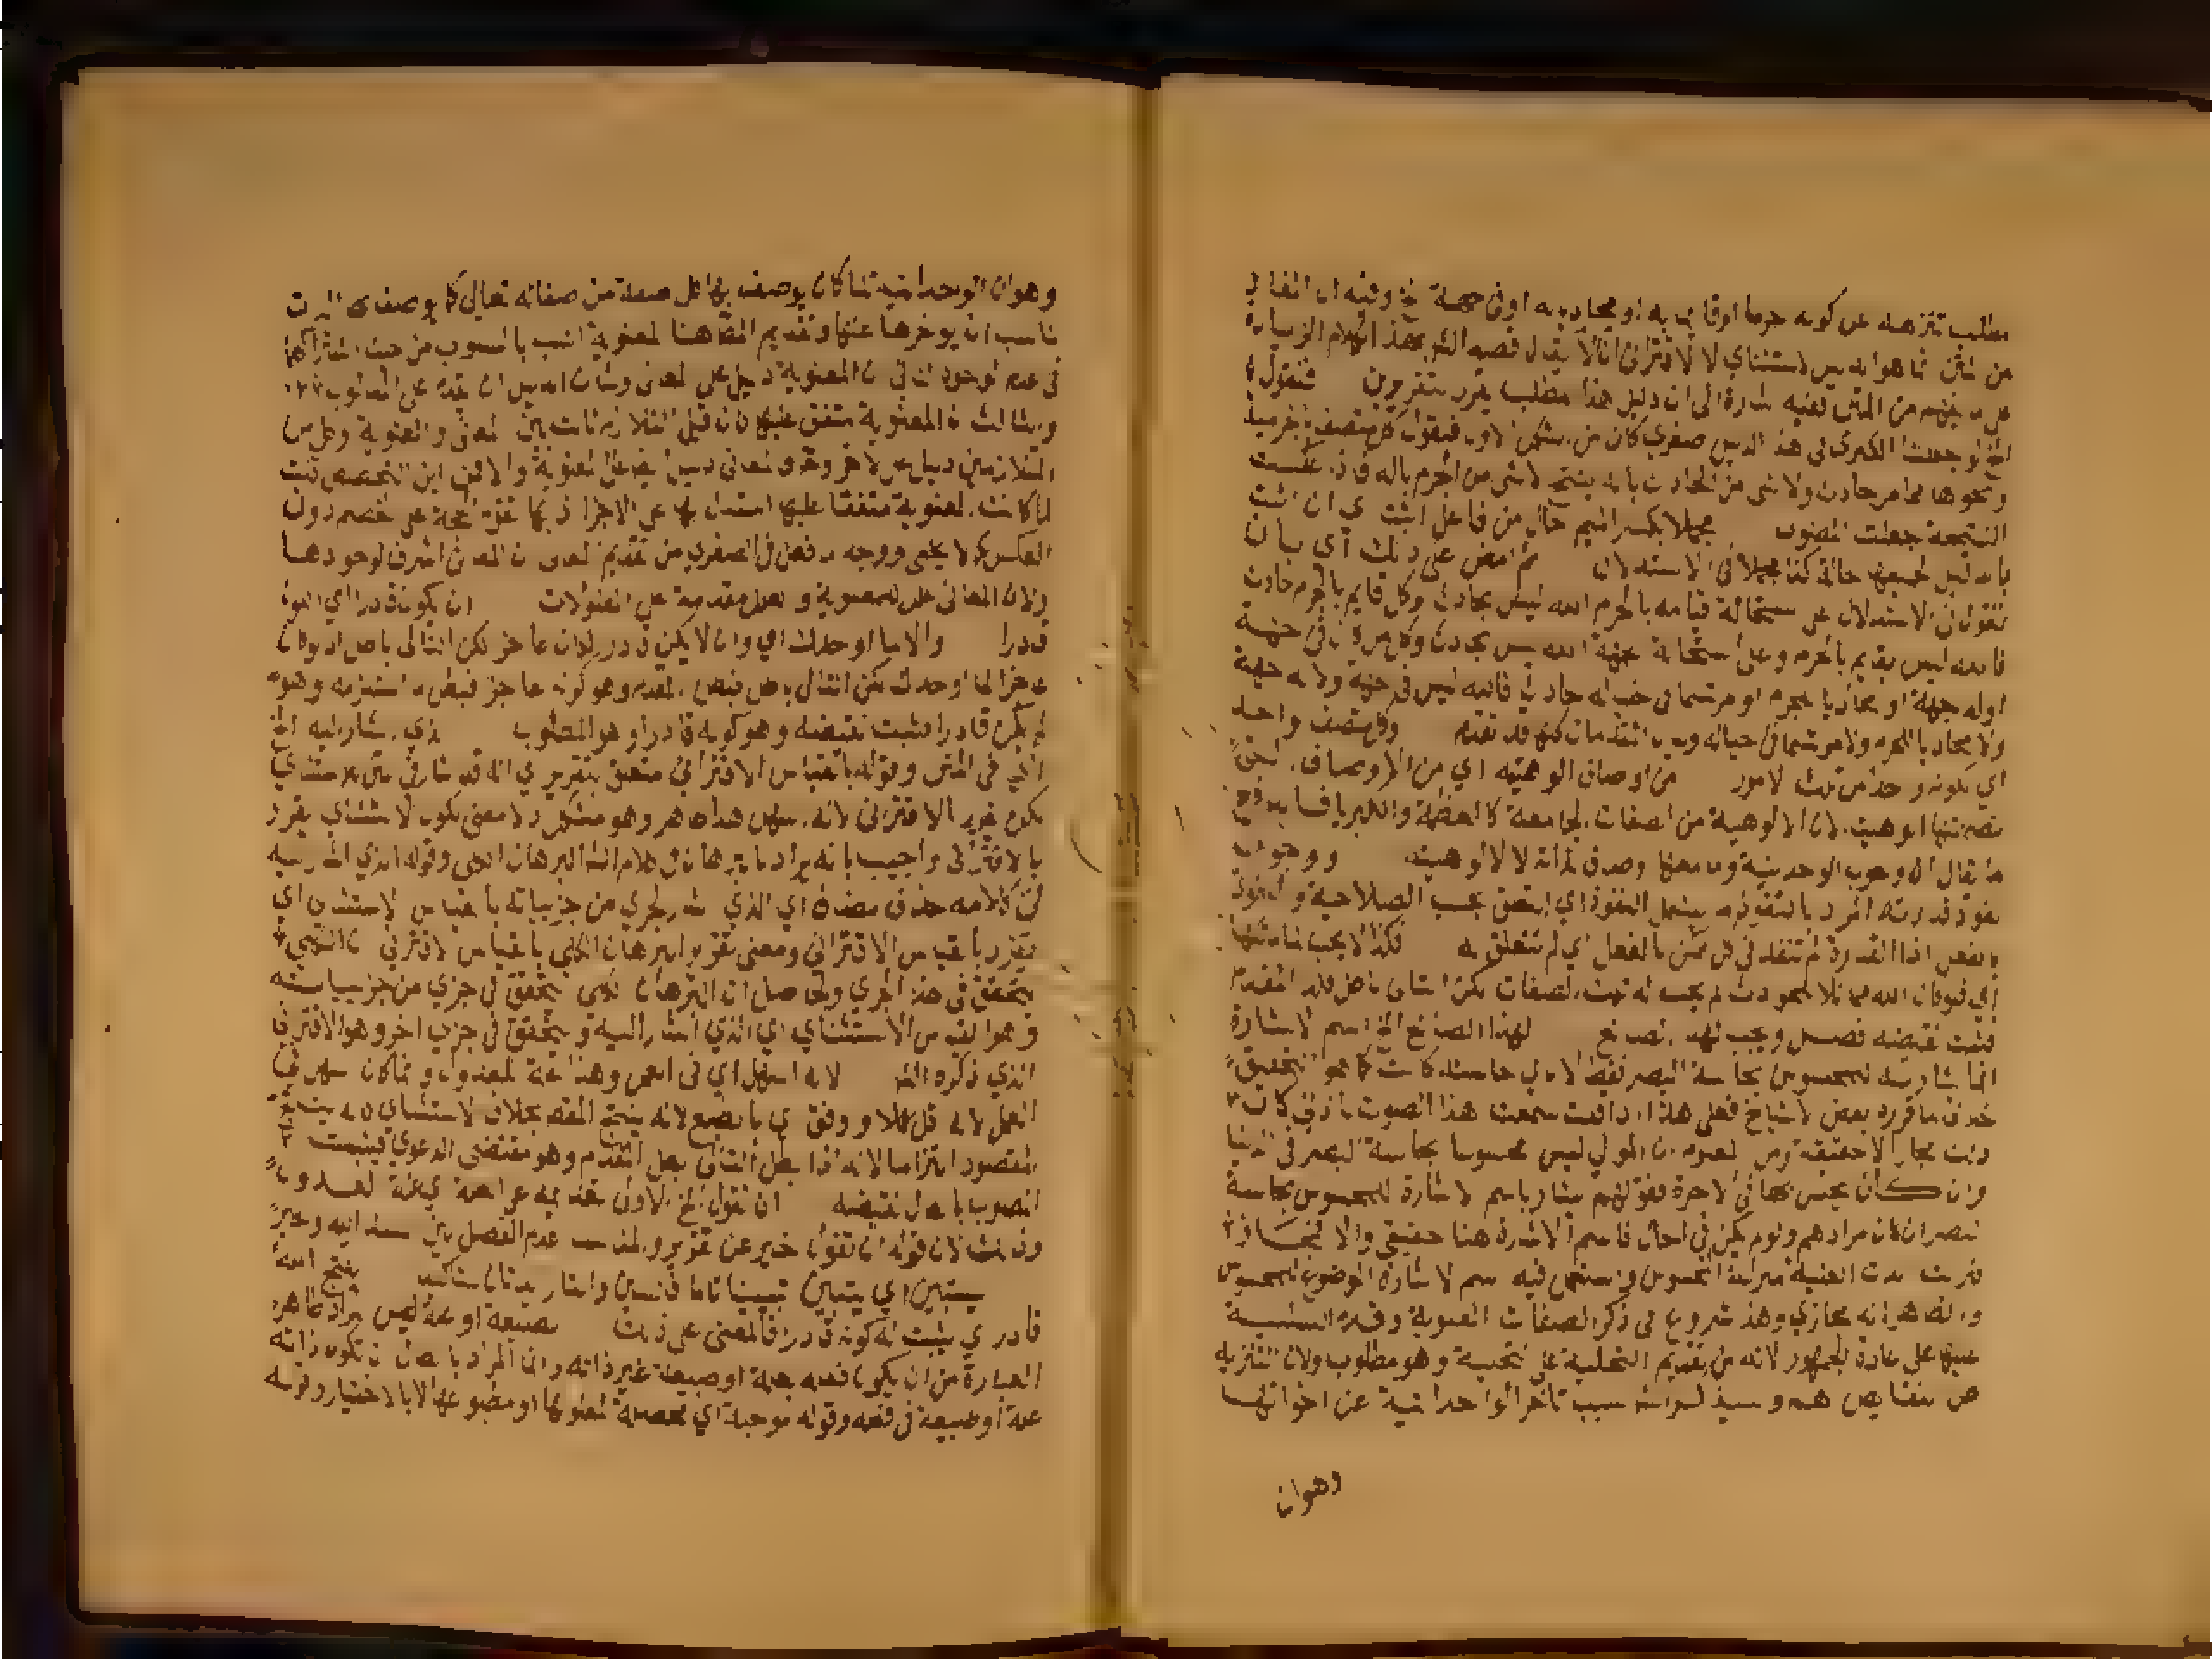 مطلب تنزهه عن كونه جرما او قايما به او محاذيه او في جهة الخ وفيه ان
من المتن انما هو الدليس الاستثناي لا الاقتراني
على ما يفهم من المتن ففيه اشارة الى ان دليل هذا المطلب يقرر بتقريرين فنقول
الخ لو جعلت الكبرى في هذا الدليس صغرى كان من الشكل الاول فنقول كل متصف
ونحوها مما مر حادث ولا شي من الحادث باله ينتج لا شي من الجرم باله فاذا عكست
النتيجة جعلت المطلوب مجملا بكسر الميم حال من فاعل اثبت اي ان اثبت
بالدليل لجميعها حالة كونك مجملا في الاستدلال ثم امض على ذلك اي بان
تقول في الاستدلال على استحالة قيامه بالجرم الله ليس بحادث وكل قايم بالجرم حادث
فالله ليس بقايم بالجرم وعلى استحالة الجهة الله ليس بحادث وكل من كان في جهة
او له جهة او محاذيا للجرم او مرتسما في خياله حادث فالله ليس في جهة ولا له جهة
ولا محاذيا للجرم ولا مرتسما في خياله وبيان المقدمات كلها قد تقدم وكل متصف بواحد
اي بكونه واحدا من تلك الامور من اوصاف الوهيته اي من الاوصاف التي
تضمنتها الوهيته لان الالوهية من الصفات الجامعة كالعظمة والكبريا فاندفع
ما يقال ان وجوب الوحدانية وما معها وصف لذاته لا لالوهيته ووجوب
نفوذ قدرته المراد بالنفوذ ما يشمل النفوذ اي التعلق بحسب الصلاحية والنفوذ
بالفعل اذ القدرة لم تنفذ في كل ممكن بالفعل اي لم تتعلق به فكذا لا يجب لما مثلها
اي فلو كان الله مماثلا للحوادث لم يجب له تلك الصفات لكن التالي باطل فالمقدم
فثبت نقيضه فصل ويجب لهذا الصانع لهذا الصانع الخ اسم الاشارة
انما يشار به للمحسوس بحاسة البصر فقط لا باي حاسة كانت كما هو التحقيق
خلاف ما قرره بعض الاشياخ فعلى هذا اذا قلت سمعت هذا الصوت باذني كان
ذلك مجازا لا حقيقة ومن المعلوم ان المولى ليس محسوسا بحاسة البصر في الدنيا
وان كان يحس بها في الاخرة فقولهم يشار باسم الاشارة للمحسوس بحاسة
البصر ان كان مرادهم ولو لم يكن في الحال فاسم الاشارة هنا حقيقي والا فمجاز
نزلت هذه الغيبة منزلة المحسوس واستعمل فيه اسم الاشارة الموضوع للمحسوس
والظاهر انه مجازي وهذا شروع في ذكر الصفات المعنوية وقدم السلبية
عليها على عادة الجمهور لانه من تقديم التخلية على التحلية وهو مطلوب ولان التنزيه
عن النقايص اهم وسيذكر الش سبب تاخر الواحدانية عن اخواتها
وهوان
وهو ان الوحدانية لما كان يوصف بها كل صفة من صفاته تعالى كما يوصف بها الذات
ناسب ان يوخرها عنها وتقديم المص هنا المعنوية انسب بالسلوب من حيث اشتراكهما
في عدم الوجود الثاني ان المعنوية دليل على المعاني وشان الدليل ان يقدم على المدلول
الثالث ان المعنوية متفق عليها فان قيل التلازم ثابت بين المعاني والمعنوية وكل من
المتلازمين دليل على الاخر وحينئذ المعاني دليل ايضا على المعنوية والا فمن اين التخصيص قلت
لما كانت المعنوية متفقا عليها استدل بها على الاخرى اذ بها تقوم الحجة على الخصم دون
العكس كما لا يخفى ووجه ما فعل في الصغرى من تقديم المعاني ان المعاني اشرف لوجودها
ولان المعاني علل للمعنوية والعلل مقدمة على المعلولات ان يكون قادرا اي
قادرا والا لما اوجدك اي وان لا يكن قادرا لكان عاجزا لكن التالي باطل اذ لو كان
عاجزا لما اوجدك لكن التالي باطل فبطل المقدم وهو كونه عاجزا فبطل ما استلزمه وهو
لم يكن قادرا فثبت نقيضه وهو كونه قادرا وهو المطلوب الذي اشار اليه الخ
اي في المتن وقوله بالقياس الاقتراني متعلق بتقرير اي انه قد اشار في
يكون تقرير الاقتراني لانه اسهل هذا ظاهره وهو مشكل اذ لا معنى لكون الاستثناي يقرر
بالاقتراني واجيب بانه يراد بالبرهان في كلام الش البرهان الكلي وقوله الذي اشار اليه
في كلامه حذف مضاف اي الذي اشار لجزي من جزيياته بالقياس الاستثناي اي
يتقرر بالقياس الاقتراني ومعنى تقرير البرهان الكلي بالقياس الاقتراني ان الكلي
يتحقق في هذا الجزي والحاصل ان البرهان الكلي يتحقق في جزي من جزيياته
وهو القياس الاستثناي اي الذي اشار اليه ويتحقق في جزي اخر وهو الاقتراني
الذي ذكره الش لانه اسهل اي في العمل وهذا علة للعدول وانما كان اسهل في
العمل لانه اقل عملا واوفق اي بالطبع لانه ينتج المقص بخلاف الاستثناي
المقصود التزاما لانه اذا بطل التالي بطل المقدم وهو مقتضى الدعوى فيثبت
المطلوب بابطال نقيضه ان تقول الخ الاولى تقديمه على العلة اي علة العدول
وذلك لان قوله ان تقول خبر عن تقرير والمناسب عدم الفصل بين المسند اليه وخبره
يستبين اي يتبين تبيينا تاما فالسين والتا زيدتا للتاكيد بفتح
قادر اي يثبت له كونه قادرا فالمعنى على ذلك بطبيعة او علة ليس مراده ظاهر
العبارة من ان يكون فعله بعلة او طبيعة غير ذاته وانما المراد باطل ان تكون ذاته
علة او طبيعة في فعله وقوله موجبة اي محصلة لمعلولها او مطبوعها لا بالاختيار وقوله